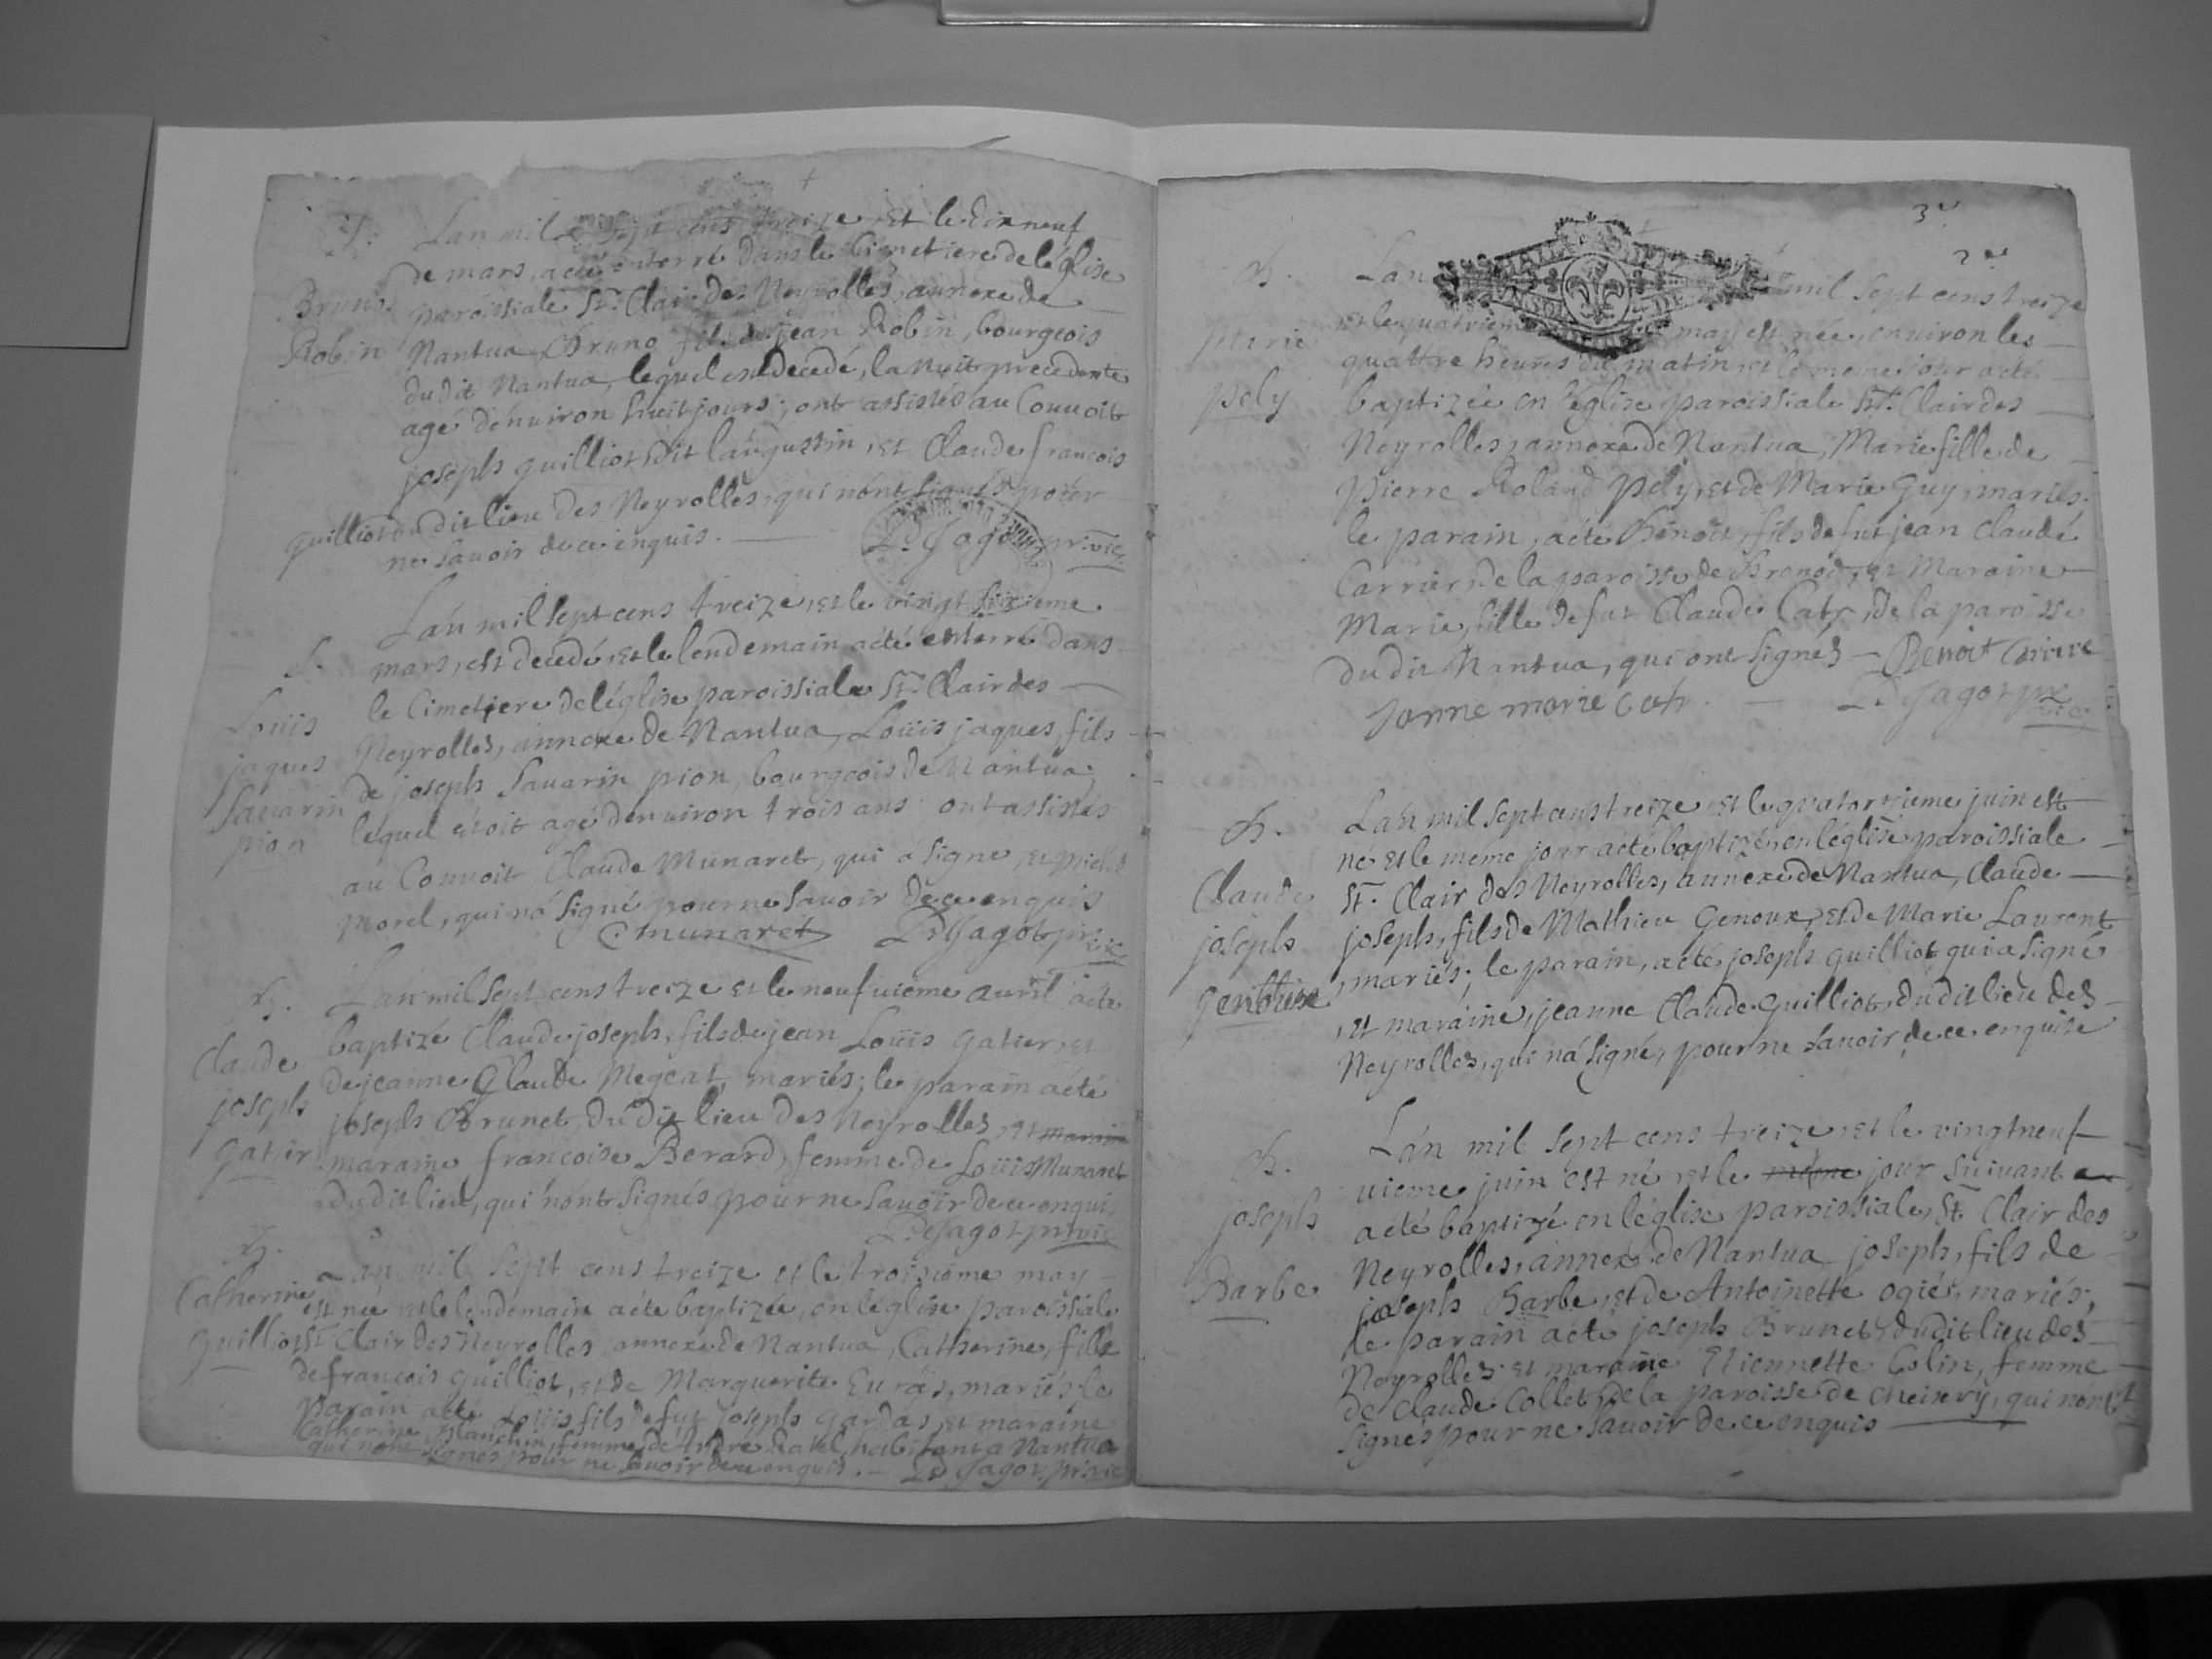 S.
Bruno
Robin
L'an mil sept cens treize et le dixneuf
de mars, a été enterré dans le Cimetiere de l'église
paroissiale St. Clair des Neyrolles, annexe de
Nantua Bruno fils de jean Robin, bourgeois
du dit Nantua, lequel est decedé, la nuit precedente
agé d'environ huit jours; ont assistés au Convoit
joseph guilliot dit l'augustin, et Claude francois
guilliot du dit lieu des Neyrolles, qui n'ont signés pour
ne savoir de ce enquis.
S.
Louis
jaques
Savarin
pion
L'an mil sept cens treize, et le vingt sixieme
mars, est decedé, et le lendemain a été enterré dans
le Cimetiere de l'église paroissiale St. Clair des
Neyrolles, annexe de Nantua, Louis jaques, fils
de joseph Savarin pion, bourgeois de Nantua,
lequel etoit agé d'environ trois ans ont assistés
au Convoit Claude Munaret, qui a signé, et michel
Morel, qui n'a signé pour ne savoir de ce enquis
C munaret
B.
Claude
joseph
gatier
L'an mil sept cens treize et le neufvieme avril a été
baptizé Claude joseph, fils de jean Louis gatier, et
de jeanne Claude Megeat, mariés; le parain a été
joseph Brunet, du dit lieu des Neyrolles, et maraine
maraine francoise Berard, femme de Louis Munaret
du dit lieu, qui n'ont signés pour ne savoir de ce enquis
B.
Catherine
guilliot
L'an mil sept cens treize et le troisieme may
est née et le lendemain a été baptizée, en l'église paroissiale
St. Clair des Neyrolles, annexe de Nantua, Catherine, fille
de francois guilliot, et de Marguerite Euras, mariés le
parain a été Louis fils de fut joseph gardas, et maraine
Catherine Blanchin, femme de André Ravel, habitant a Nantua
qui n'ont signés pour ne savoir de ce enquis.
3e
2e
B.
Marie
pely
L'an mil sept cens treize
et le quatrieme may est née, environ les
quattre heures du matin, et le meme jour a été
baptizée en l'église paroissiale St. Clair des
Neyrolles, annexe de Nantua, Marie fille de
pierre Roland pely, et de Marie Guy, mariés.
le parain, a été Benoit, fils de fut jean Claude
Carrier, de la paroisse de Brenod, et Maraine
Marie, fille de fut Claude Catr, de la paroisse
du dit Nantua, qui ont signés Benoit
Janne marie Catr
B.
Claude
joseph
genoux
L'an mil sept cens treize et le quatorzieme juin est
né et le méme jour a été baptizé, en l'église paroissiale
St. Clair des Neyrolles, annexe de Nantua, Claude
joseph, fils de Mathieu Genoux, et de Marie Laurent
, mariés; le parain, a été joseph guilliot qui a signé
, et maraine, jeanne Claude guilliot, du dit lieu des
Neyrolles, qui n'a signé, pour ne savoir de ce enquise
B.
joseph
Barbe
L'an mil sept cens treize, et le vingt neuf
vieme juin est né et le méme jour suivant
a été baptizé en l'église paroissiale, St. Clair des
Neyrolles, annexe de Nantua joseph, fils de
joseph Barbe, et de Antoinette ogier, mariés,
le parain a été joseph Brunet, du dit lieu des
Neyrolles et maraine Etiennette Colin, femme
de Claude Collet, de la paroisse de, qui n'ont
signés pour ne savoir de ce enquis